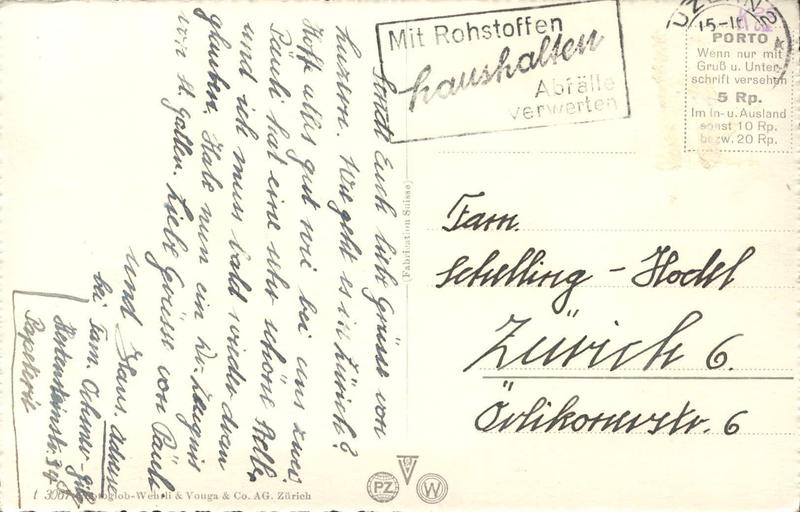 Mit Rohstoffen
haushalten
Abfälle
verwerten
LUZERN 2
15-11
PORTO
Wenn nur mit
Gruß u. Unter-
schrift versehen
5 Rp.
Im In- u. Ausland
sonst 10 Rp.
bezw. 20 Rp.
Sendt Euch liebe Grüsse von
Luzern. Wie geht es in Zürich?
Hoffe alles gut wie bei uns zwei
Päuli hat eine sehr schöne Stelle
und ich mus bald wieder dran
glauben. Habe nun ein Dr. Zeugnis
von St. Gallen. Liebe Grüsse von Päuli
und Hans.
bei Fam.
Papeterie
(Fabrication Suisse)
Fam.
Schelling - Hodel
Zürich 6.
Örlikonerstr. 6
PZ
W
Photoglob-Wehrli & Vouga & Co. AG. Zürich